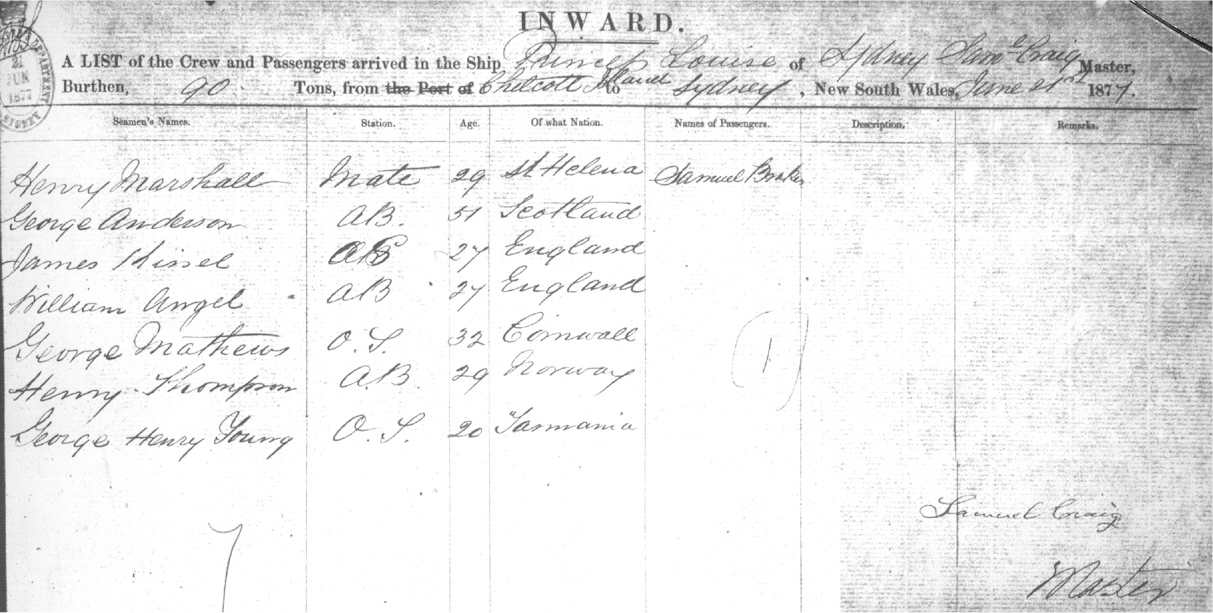 INWARD.
A LIST of the Crew and Passengers arrived in the Ship Princess Louise of Sydney Saml Craig Master,
Burthen, 90 Tons, from the Port of Chilcott Island to Sydney, New South Wales, June 21st 1877.
Seamen's Names. Station. Age. Of what Nation. Names of Passengers. Description. Remarks.
Henry Marshall Mate 29 St Helena Samuel
George Anderson A.B. 51 Scotland
James AB 27 England
William Angel AB 27 England
George Mathews O.S. 32 Cornwall
(1)
Henry Thompson A.B. 29 Norway
George Henry Young O.S. 20 Tasmania
Samuel Craig
7
Master
21
JUN
1877
SYDNEY